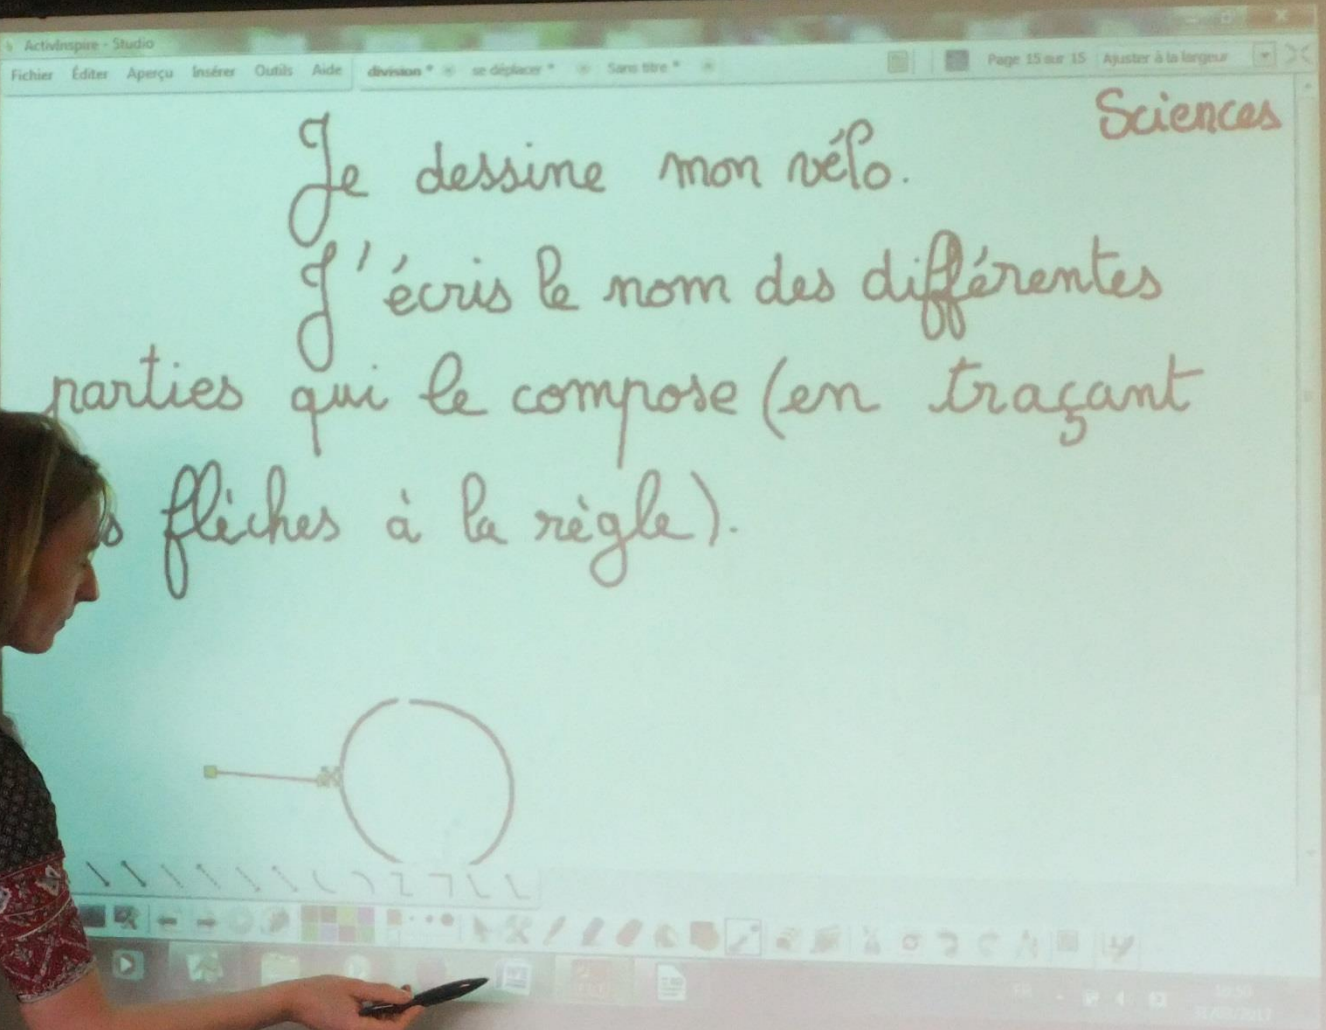 ActivInspire - Studio
Fichier Éditer Aperçu Insérer Outils Aide division * se déplacer * Sans titre * Page 15 sur 15 Ajuster à la largeur
Sciences
Je dessine mon vélo.
J'écris le nom des différentes
parties qui le compose (en traçant
flèches à la règle).